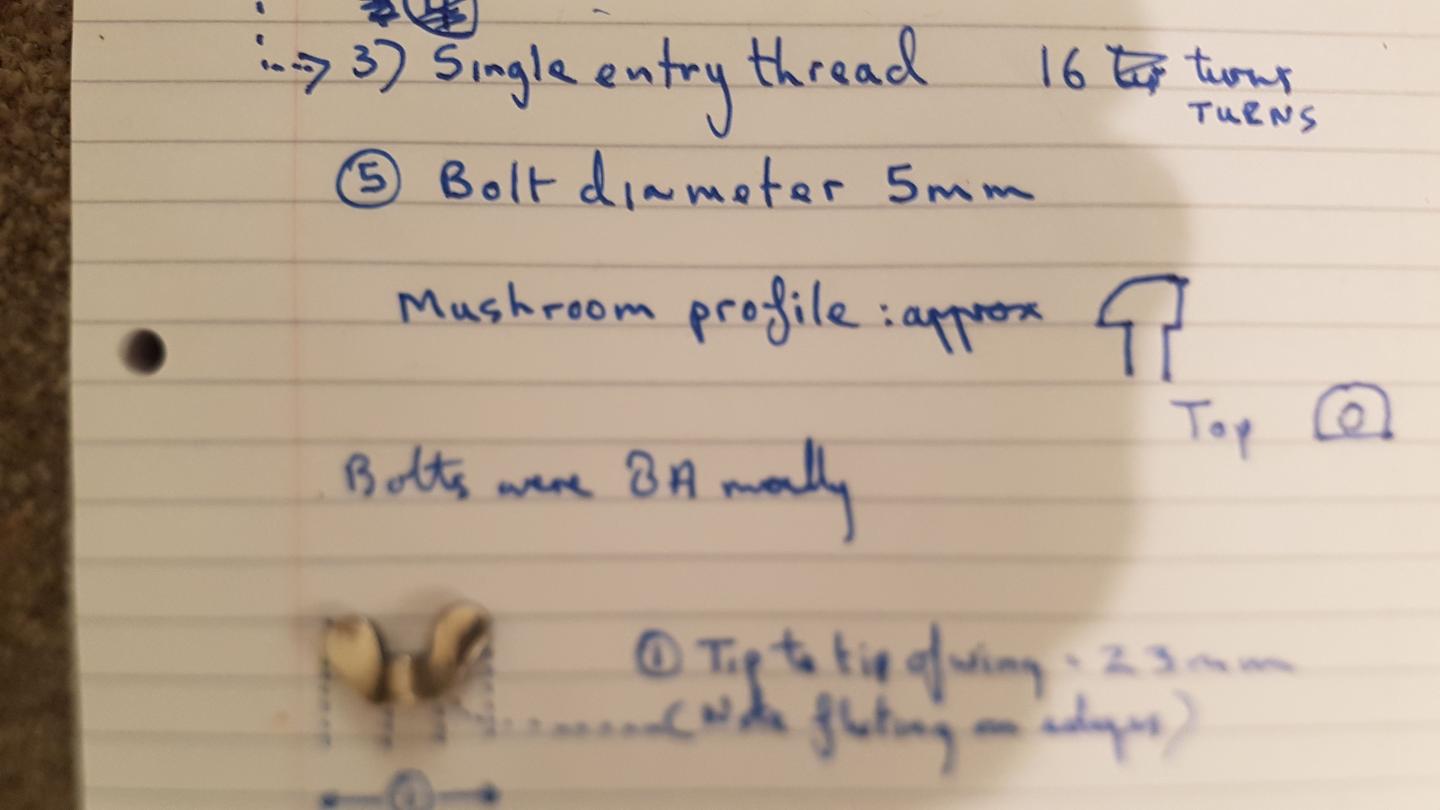 3) Single entry thread 16 turns
TURNS
⑤ Bolt diameter 5mm
Mushroom profile : approx
Top
Bolts were BA
① Tip to tip of wing - 23mm
(Note fluting on edges)
①